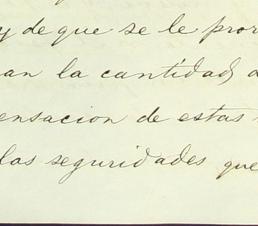 y de que se le pror
an la cantidad d
ensacion de estas
las seguridades que